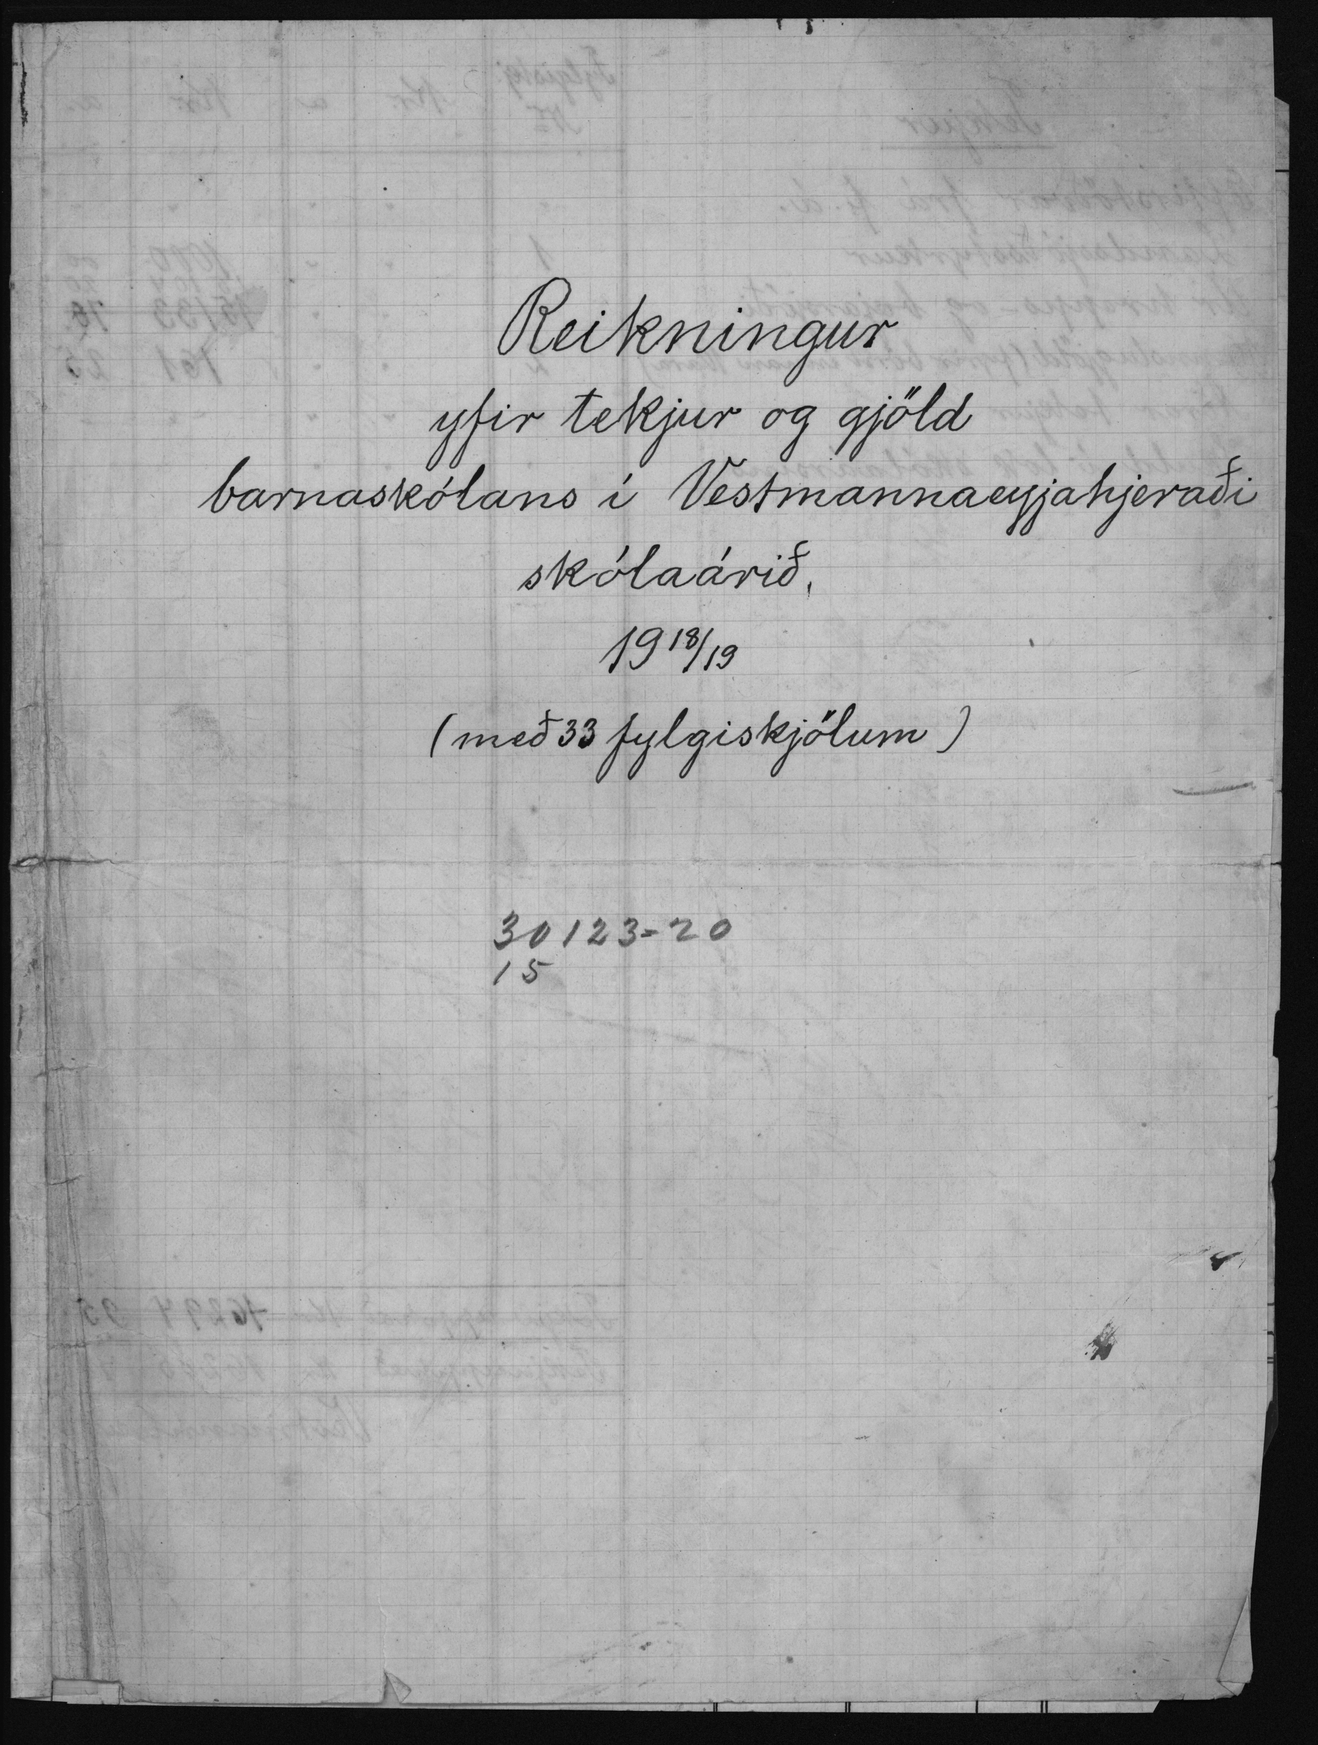 Reikningur
yfir tekjur og gjöld
barnaskólans í Vestmannaeyjahjeraði
skólaárið,
19 18/19
(með 33 fylgiskjölum)
30123-20
15